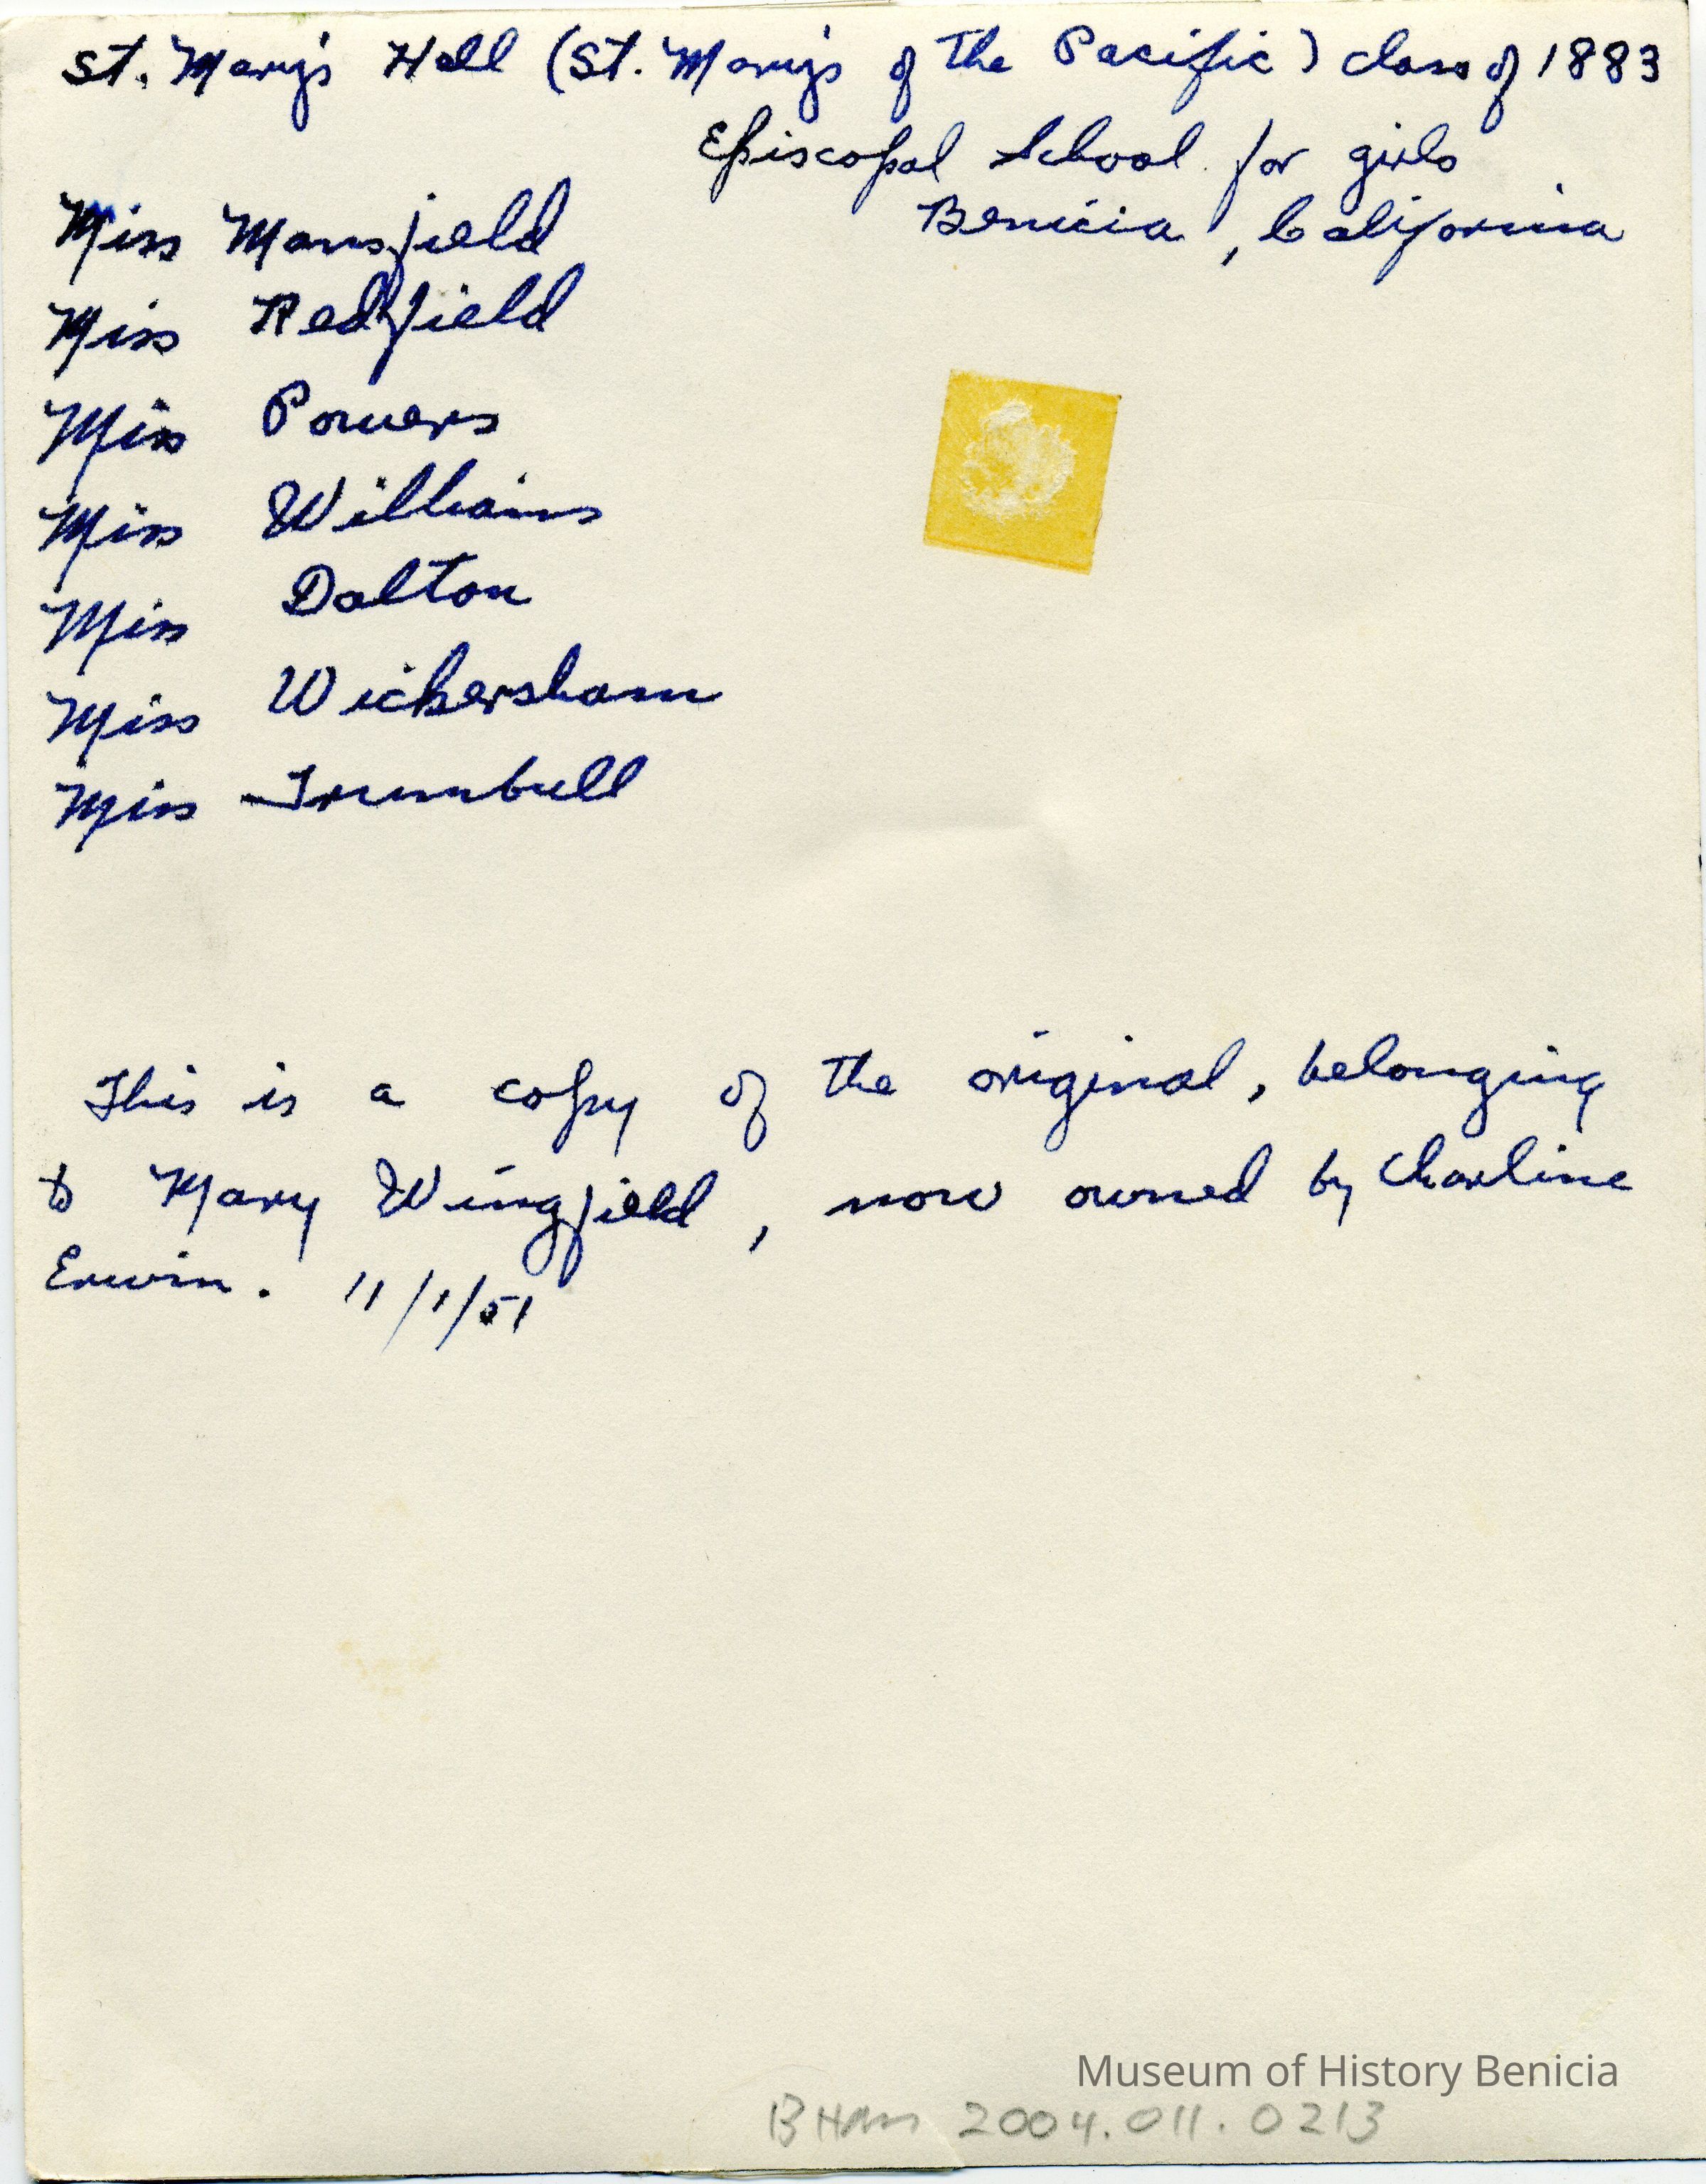 St. Mary's Hall (St. Mary's of the Pacific) class of 1883
Episcopal School for girls
Benicia, California
Miss Mansfield
Miss Redfield
Miss Powers
Miss Williams
Miss Dalton
Miss Wickersham
Miss Trumbull
This is a copy of the original, belonging
to Mary Wingfield, now owned by Charline
Erwin. 11/1/51
Museum of History Benicia
BHAM 2004.011.0213